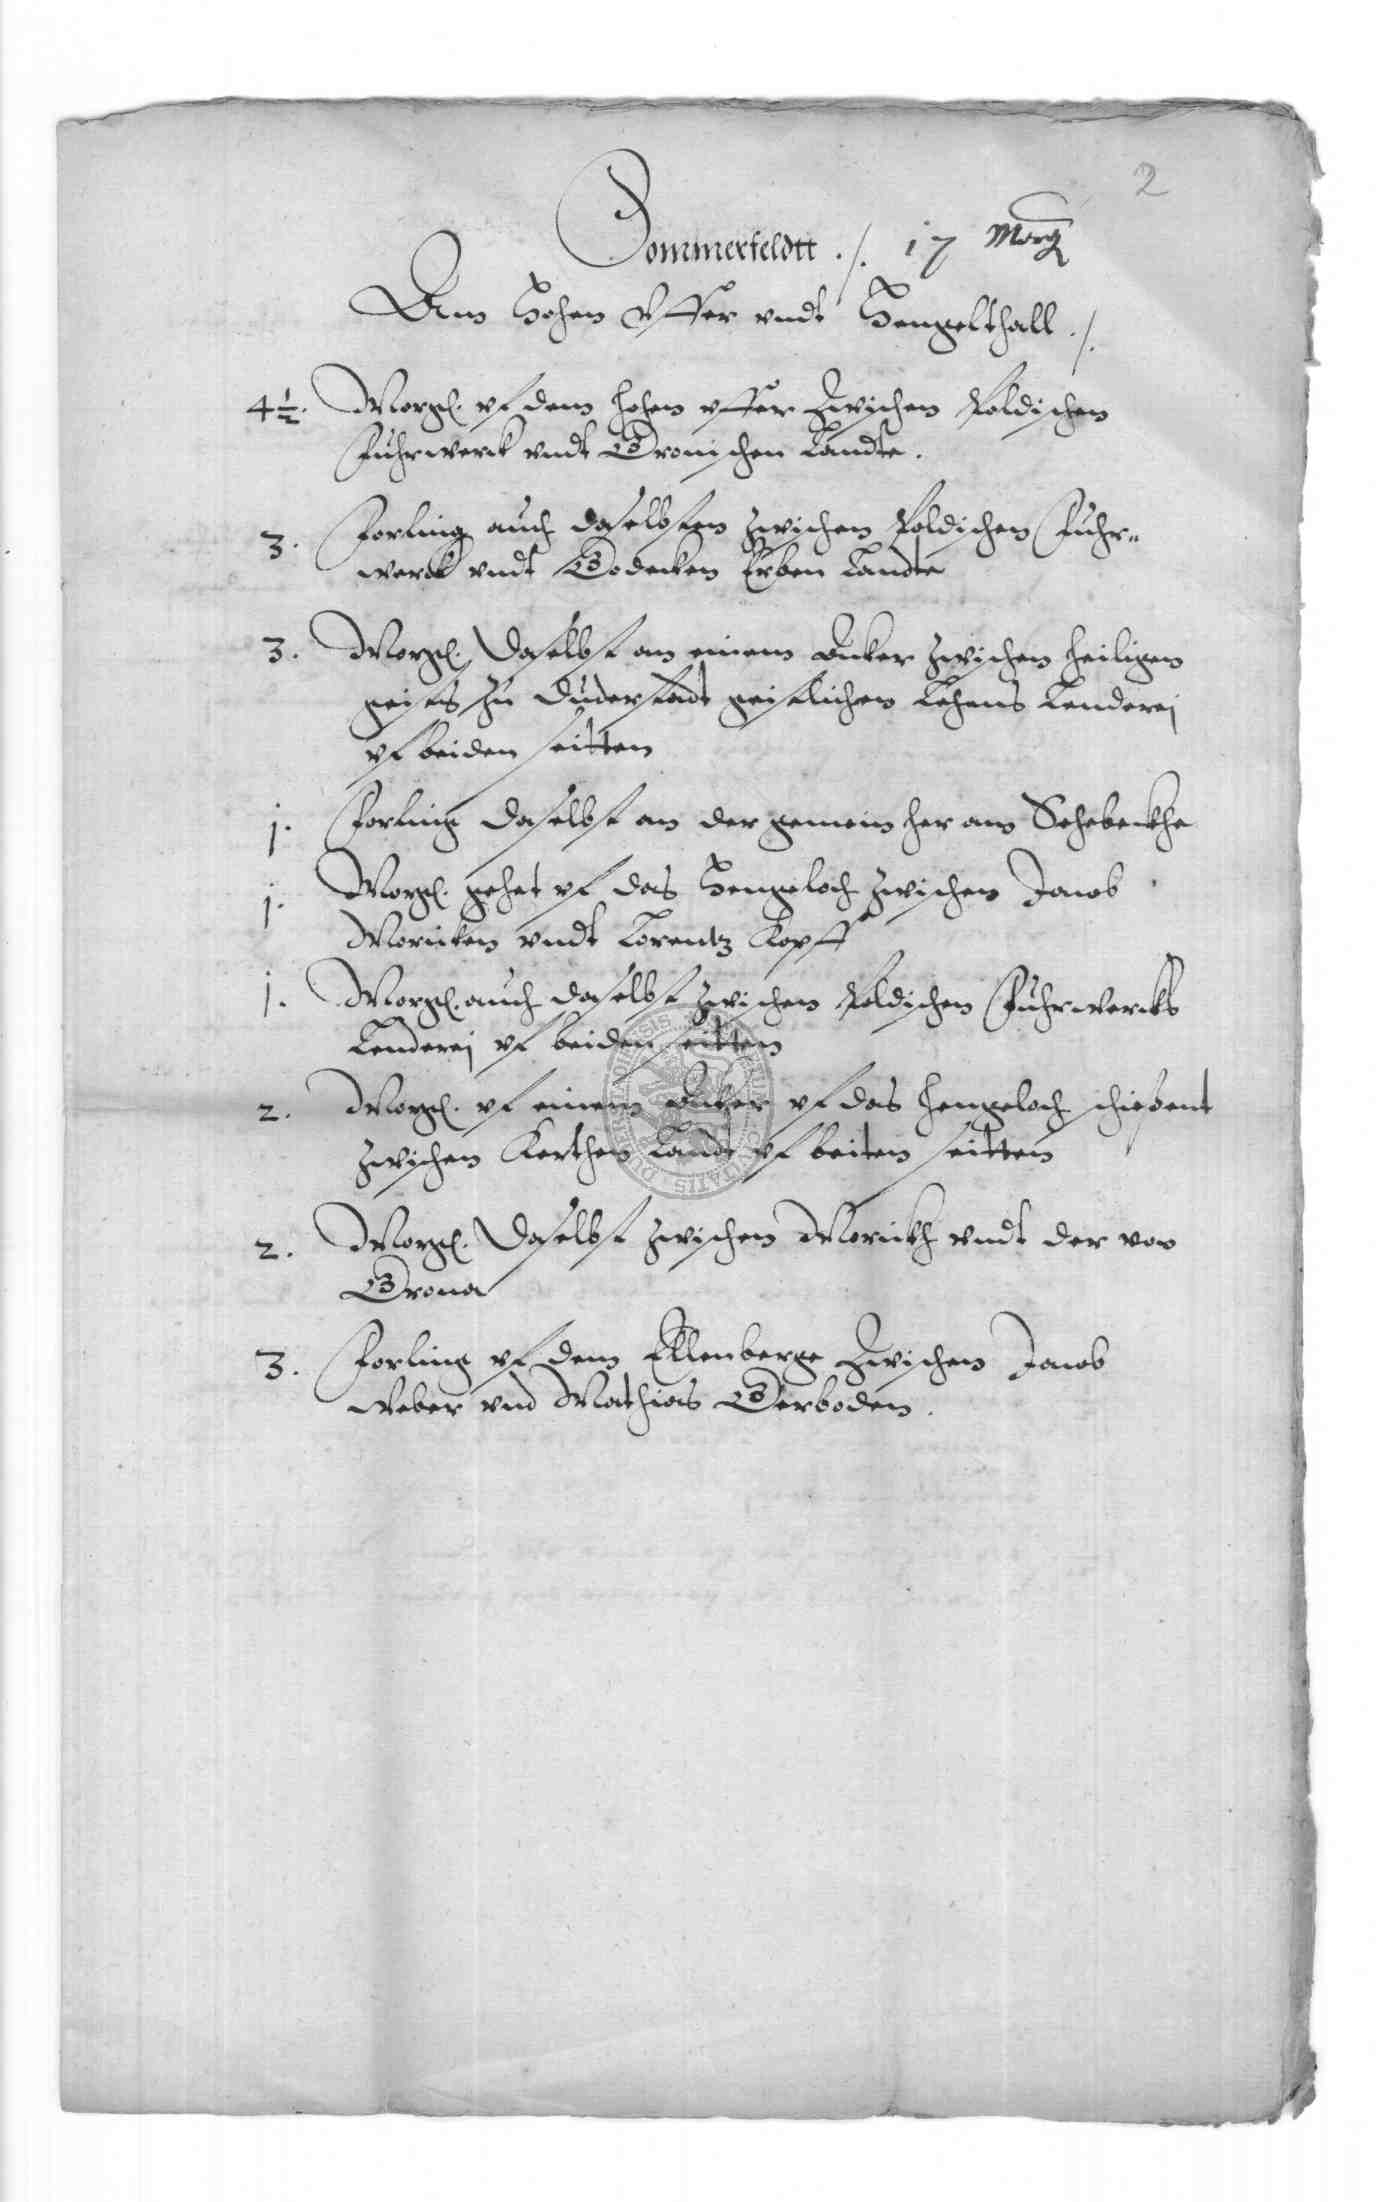 2
Sommerfeldtt ./. 17 Morg
Am Hohen Vffer vndt Hengelthall ./.
4½. Morg. vf dem hohen vffer Zwischen Poldischen
Fuhrwerck vndt Gronischen Landte.
3. Forling auch daselbsten zwischen Poldischen Fuhr=
werck vndt Godecken Erben Landte
3. Morg. daselbst an einem Ancker zwischen heiligen
geists zu Duderstadt geistlichen Lehens Lenderej
vf beiden seitten
j. Forling daselbst an der gemein her am
j. Morg. gehet vf das Hengeloch zwischen Jacob
Moricken vndt Lorentz Kopff
j. Morg. auch daselbst zwischen Poldischen Fuhrwercks
Lenderej vf beiden seitten
2. Morg. vf einem Ancker vf das hengeloch schießent
zwischen Kerthen Landt vf beiten seitten
2. Morg. daselbst zwischen Morickh vndt der von
Grona
3. Forling vf dem Ellenberge Zwischen Jacob
Weber vnd Mathias Gerboden.